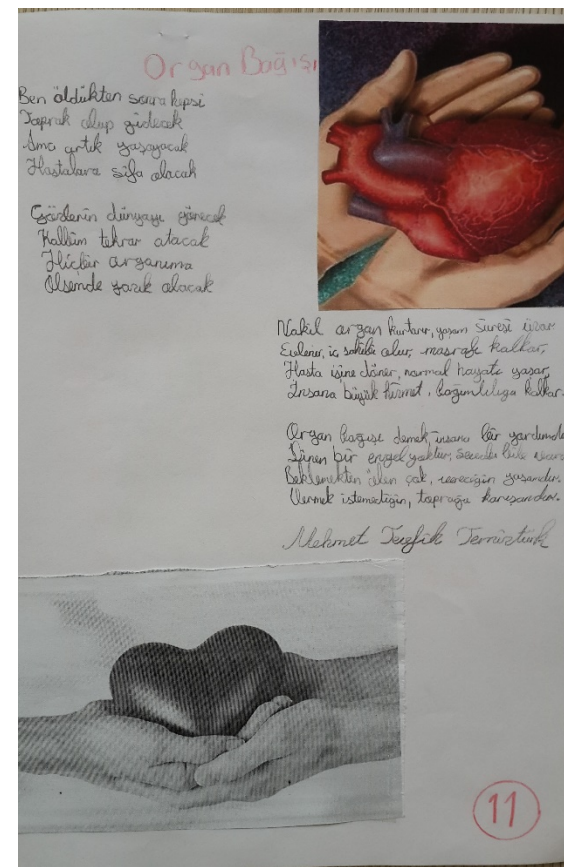 Organ Bağışı
Ben öldükten sonra hepsi
Toprak olup gidecek
Ama artık yaşayacak
Hastalara şifa olacak
Gözlerin dünyayı görecek
Kalbim tekrar atacak
Hiçbir organıma
Ölsemde yazık olacak
Nakil organ kurtarır, yaşam süresi uzar
Evlenir, iş sahibi olur, masrafı kalkar,
Hasta işine döner, normal hayatı yaşar,
İnsana büyük hizmet, bağımlılığı kalkar.
Organ bağışı demek, insana bir yardımdır
Dinen bir engel yoktur, bile
Beklemekten ölen çok, vereceğin yaşandır.
Vermek istemediğin, toprağa karışandır.
Mehmet Tevfik Temiztürk
11